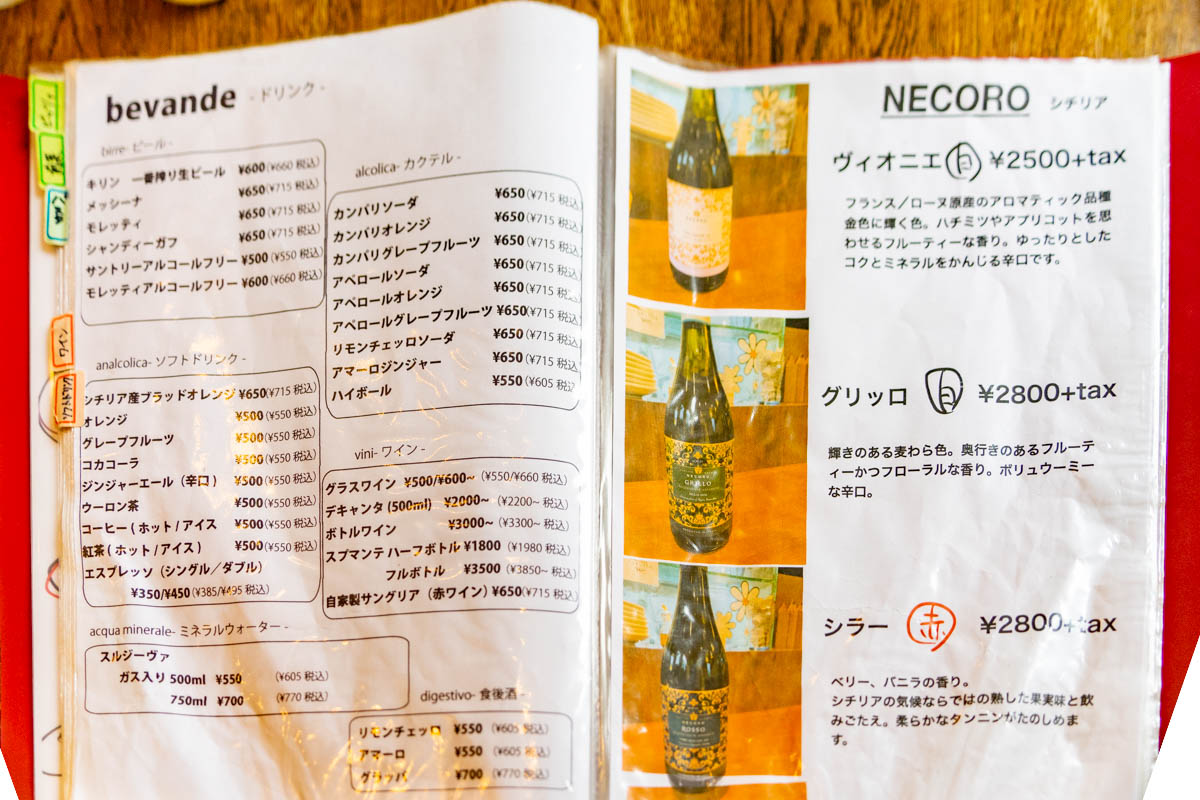 bevande - ドリンク -
birre- ビール -
キリン 一番搾り生ビール ¥600(¥660 税込)
メッシーナ ¥650(¥715 税込)
モレッティ ¥650(¥715 税込)
シャンディーガフ ¥650(¥715 税込)
サントリーアルコールフリー ¥500(¥550 税込)
モレッティアルコールフリー ¥600(¥660 税込)
analcolica- ソフトドリンク -
シチリア産ブラッドオレンジ ¥650(¥715 税込)
オレンジ ¥500(¥550 税込)
グレープフルーツ ¥500(¥550 税込)
コカコーラ ¥500(¥550 税込)
ジンジャーエール（辛口） ¥500(¥550 税込)
ウーロン茶 ¥500(¥550 税込)
コーヒー ( ホット / アイス ¥500(¥550 税込)
紅茶 ( ホット / アイス ) ¥500(¥550 税込)
エスプレッソ（シングル／ダブル）
¥350/¥450 (¥385/¥495 税込)
acqua minerale- ミネラルウォーター -
スルジーヴァ
ガス入り 500ml ¥550 (¥605 税込)
750ml ¥700 (¥770 税込)
alcolica- カクテル -
カンパリソーダ ¥650(¥715 税込)
カンパリオレンジ ¥650(¥715 税込)
カンパリグレープフルーツ ¥650(¥715 税込)
アペロールソーダ ¥650(¥715 税込)
アペロールオレンジ ¥650(¥715 税込)
アペロールグレープフルーツ ¥650(¥715 税込)
リモンチェッロソーダ ¥650(¥715 税込)
アマーロジンジャー ¥650(¥715 税込)
ハイボール ¥550(¥605 税込)
vini- ワイン -
グラスワイン ¥500/¥600~ (¥550/¥660 税込)
デキャンタ (500ml) ¥2000~ (¥2200~ 税込)
ボトルワイン ¥3000~ (¥3300~ 税込)
スプマンテ ハーフボトル ¥1800 (¥1980 税込)
フルボトル ¥3500 (¥3850~ 税込)
自家製サングリア（赤ワイン）¥650(¥715 税込)
digestivo- 食後酒 -
リモンチェッロ ¥550 (¥605 税込)
アマーロ ¥550 (¥605 税込)
グラッパ ¥700 (¥770 税込)
ワイン
NECORO シチリア
ヴィオニエ 白 ¥2500+tax
フランス／ローヌ原産のアロマティック品種
金色に輝く色。ハチミツやアプリコットを思
わせるフルーティーな香り。ゆったりとした
コクとミネラルをかんじる辛口です。
グリッロ 白 ¥2800+tax
輝きのある麦わら色。奥行きのあるフルーテ
ィーかつフローラルな香り。ボリュウーミー
な辛口。
GRILLO
シラー 赤 ¥2800+tax
ベリー、バニラの香り。
シチリアの気候ならではの熟した果実味と飲
みごたえ。柔らかなタンニンがたのしめま
す。
ROSSO